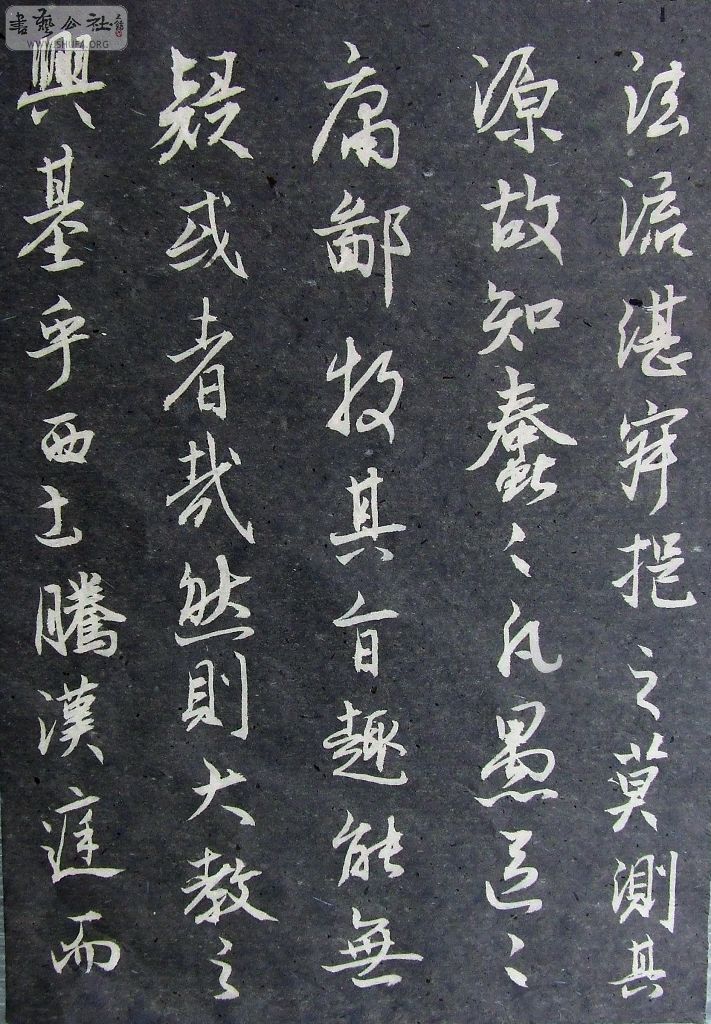 法流湛寂挹之莫測其
源故知蠢〻凡愚區〻
庸鄙投其旨趣能無
疑或者哉然則大教之
興基乎西土騰漢庭而
書藝公社
WWW.SHUFA.ORG